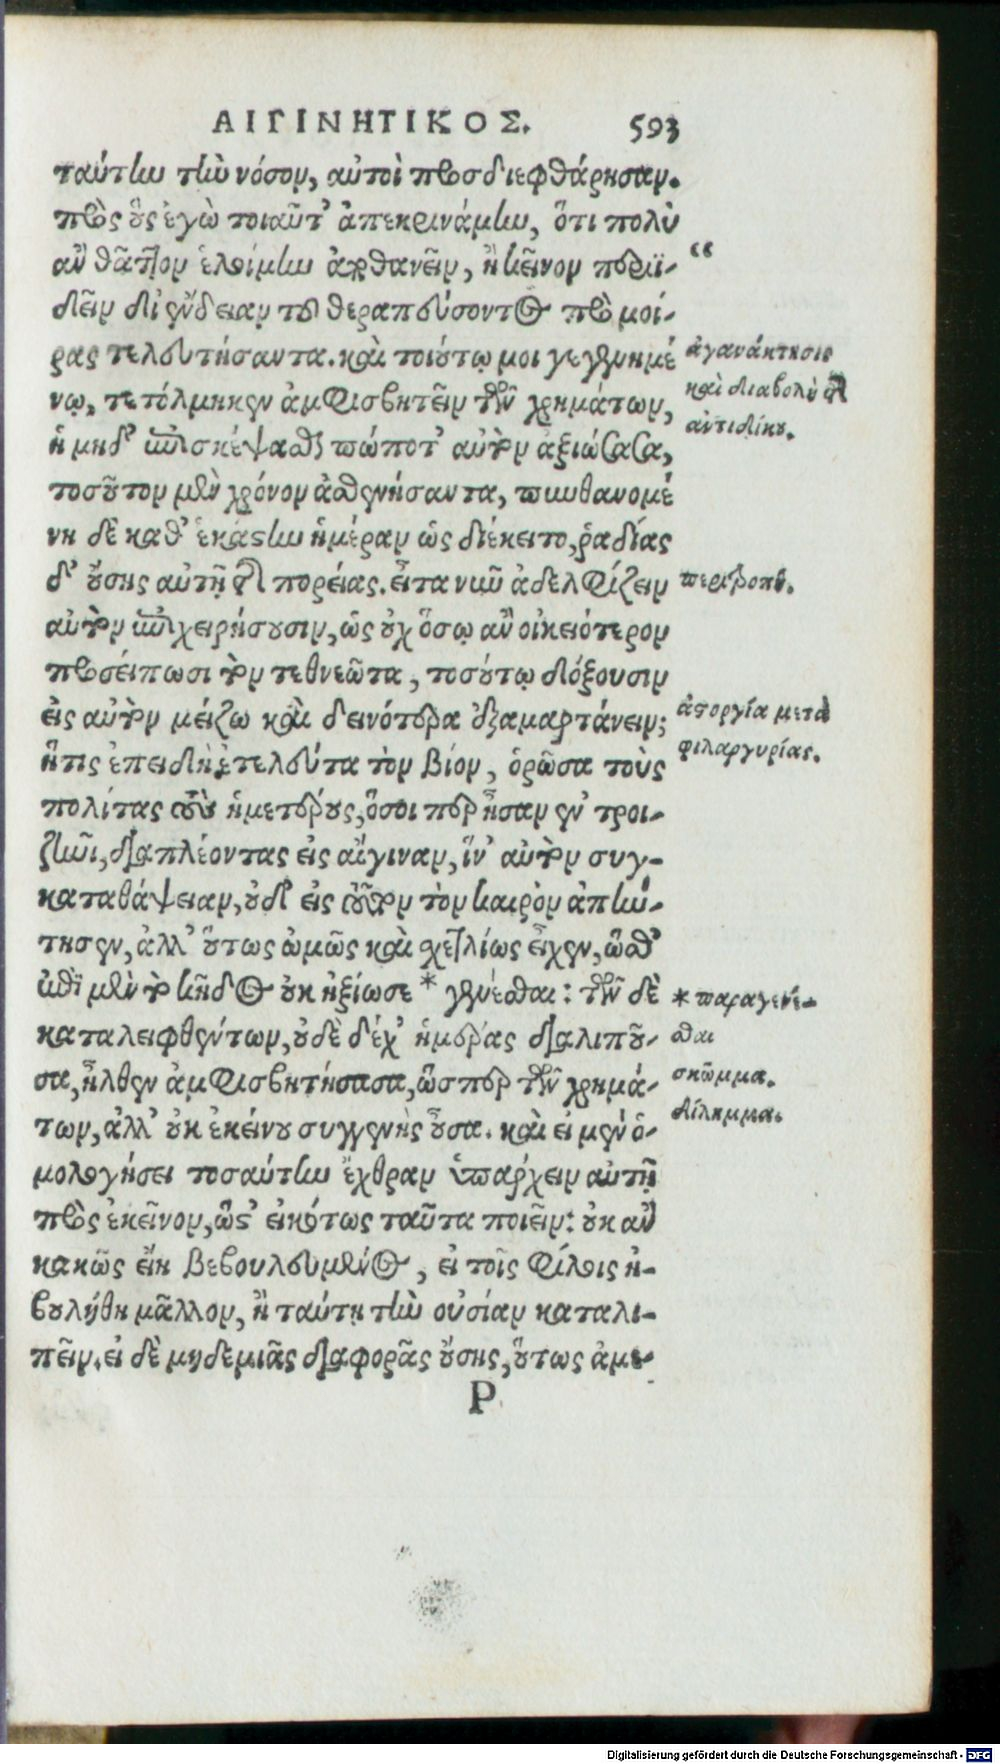 ΑΙΓΙΝΗΤΙΚΟΣ. 593
ταύτην τὴν νόσον, αὐτοὶ προσδιεφθάρησαν.
πρὸς οὓς ἐγὼ τοιαῦτ' ἀπεκρινάμην, ὅτι πολὺ
ἂν θᾶττον ἑλοίμην ἀποθανεῖν, ἢ κεῖνον περιϊ-
“
δεῖν δι' ἔνδειαν τοῦ θεραπεύσοντος πρὸ μοί-
ρας τελευτήσαντα. καὶ τοιούτῳ μοι γεγενημέ
ἀγανάκτησις
νῳ, τετόλμηκεν ἀμφισβητεῖν τῶν χρημάτων,
καὶ διαβολὴ τοῦ
ἡ μηδ' ἐπισκέψασθαι πώποτ' αὐτὸν ἀξιώσασα,
ἀντιδίκου.
τοσοῦτον μὲν χρόνον ἀσθενήσαντα, πυνθανομέ
νη δὲ καθ' ἑκάστην ἡμέραν ὡς διέκειτο, ῥαδίας
δ' οὔσης αὐτῇ τῆς πορείας. εἶτα νῦν ἀδελφίζειν
περιτροπή.
αὐτὸν ἐπιχειρήσουσιν, ὡς οὐχ ὅσῳ ἂν οἰκειότερον
προσείπωσι τὸν τεθνεῶτα, τοσούτῳ δόξουσιν
εἰς αὐτὸν μείζω καὶ δεινότερα ἐξαμαρτάνειν;
ἀστοργία μετὰ
ἥτις ἐπειδὴ ἐτελεύτα τὸν βίον, ὁρῶσα τοὺς
φιλαργυρίας.
πολίτας τοὺς ἡμετέρους, ὅσοι περ ἦσαν ἐν τροι-
ζῆνι, διαπλέοντας εἰς αἴγιναν, ἵν' αὐτὸν συγ-
καταθάψειαν, οὐδ' εἰς τοῦτον τὸν καιρὸν ἀπήν-
τησεν, ἀλλ' οὕτως ὠμῶς καὶ σχετλίως εἶχεν, ὥσθ'
ἐπὶ μὲν τὸ κῆδος οὐκ ἠξίωσε * γενέσθαι: τῶν δὲ
* παραγενέ-
καταλειφθέντων, οὐδὲ δέχ' ἡμέρας διαλιποῦ-
σθαι
σα, ἦλθεν ἀμφισβητήσασα, ὥσπερ τῶν χρημά-
σκῶμμα.
των, ἀλλ' οὐκ ἐκείνου συγγενὴς οὖσα. καὶ εἰ μὲν ὁ-
δίλημμα.
μολογήσει τοσαύτην ἔχθραν ὑπάρχειν αὐτῇ
πρὸς ἐκεῖνον, ὥστ' εἰκότως ταῦτα ποιεῖν: οὐκ ἂν
κακῶς εἴη βεβουλευμένος, εἰ τοῖς φίλοις ἠ-
βουλήθη μᾶλλον, ἢ ταύτῃ τὴν οὐσίαν καταλι-
πεῖν. εἰ δὲ μηδεμιᾶς διαφορᾶς οὔσης, οὕτως ἀμε-
P
Digitalisierung gefördert durch die Deutsche Forschungsgemeinschaft - DFG